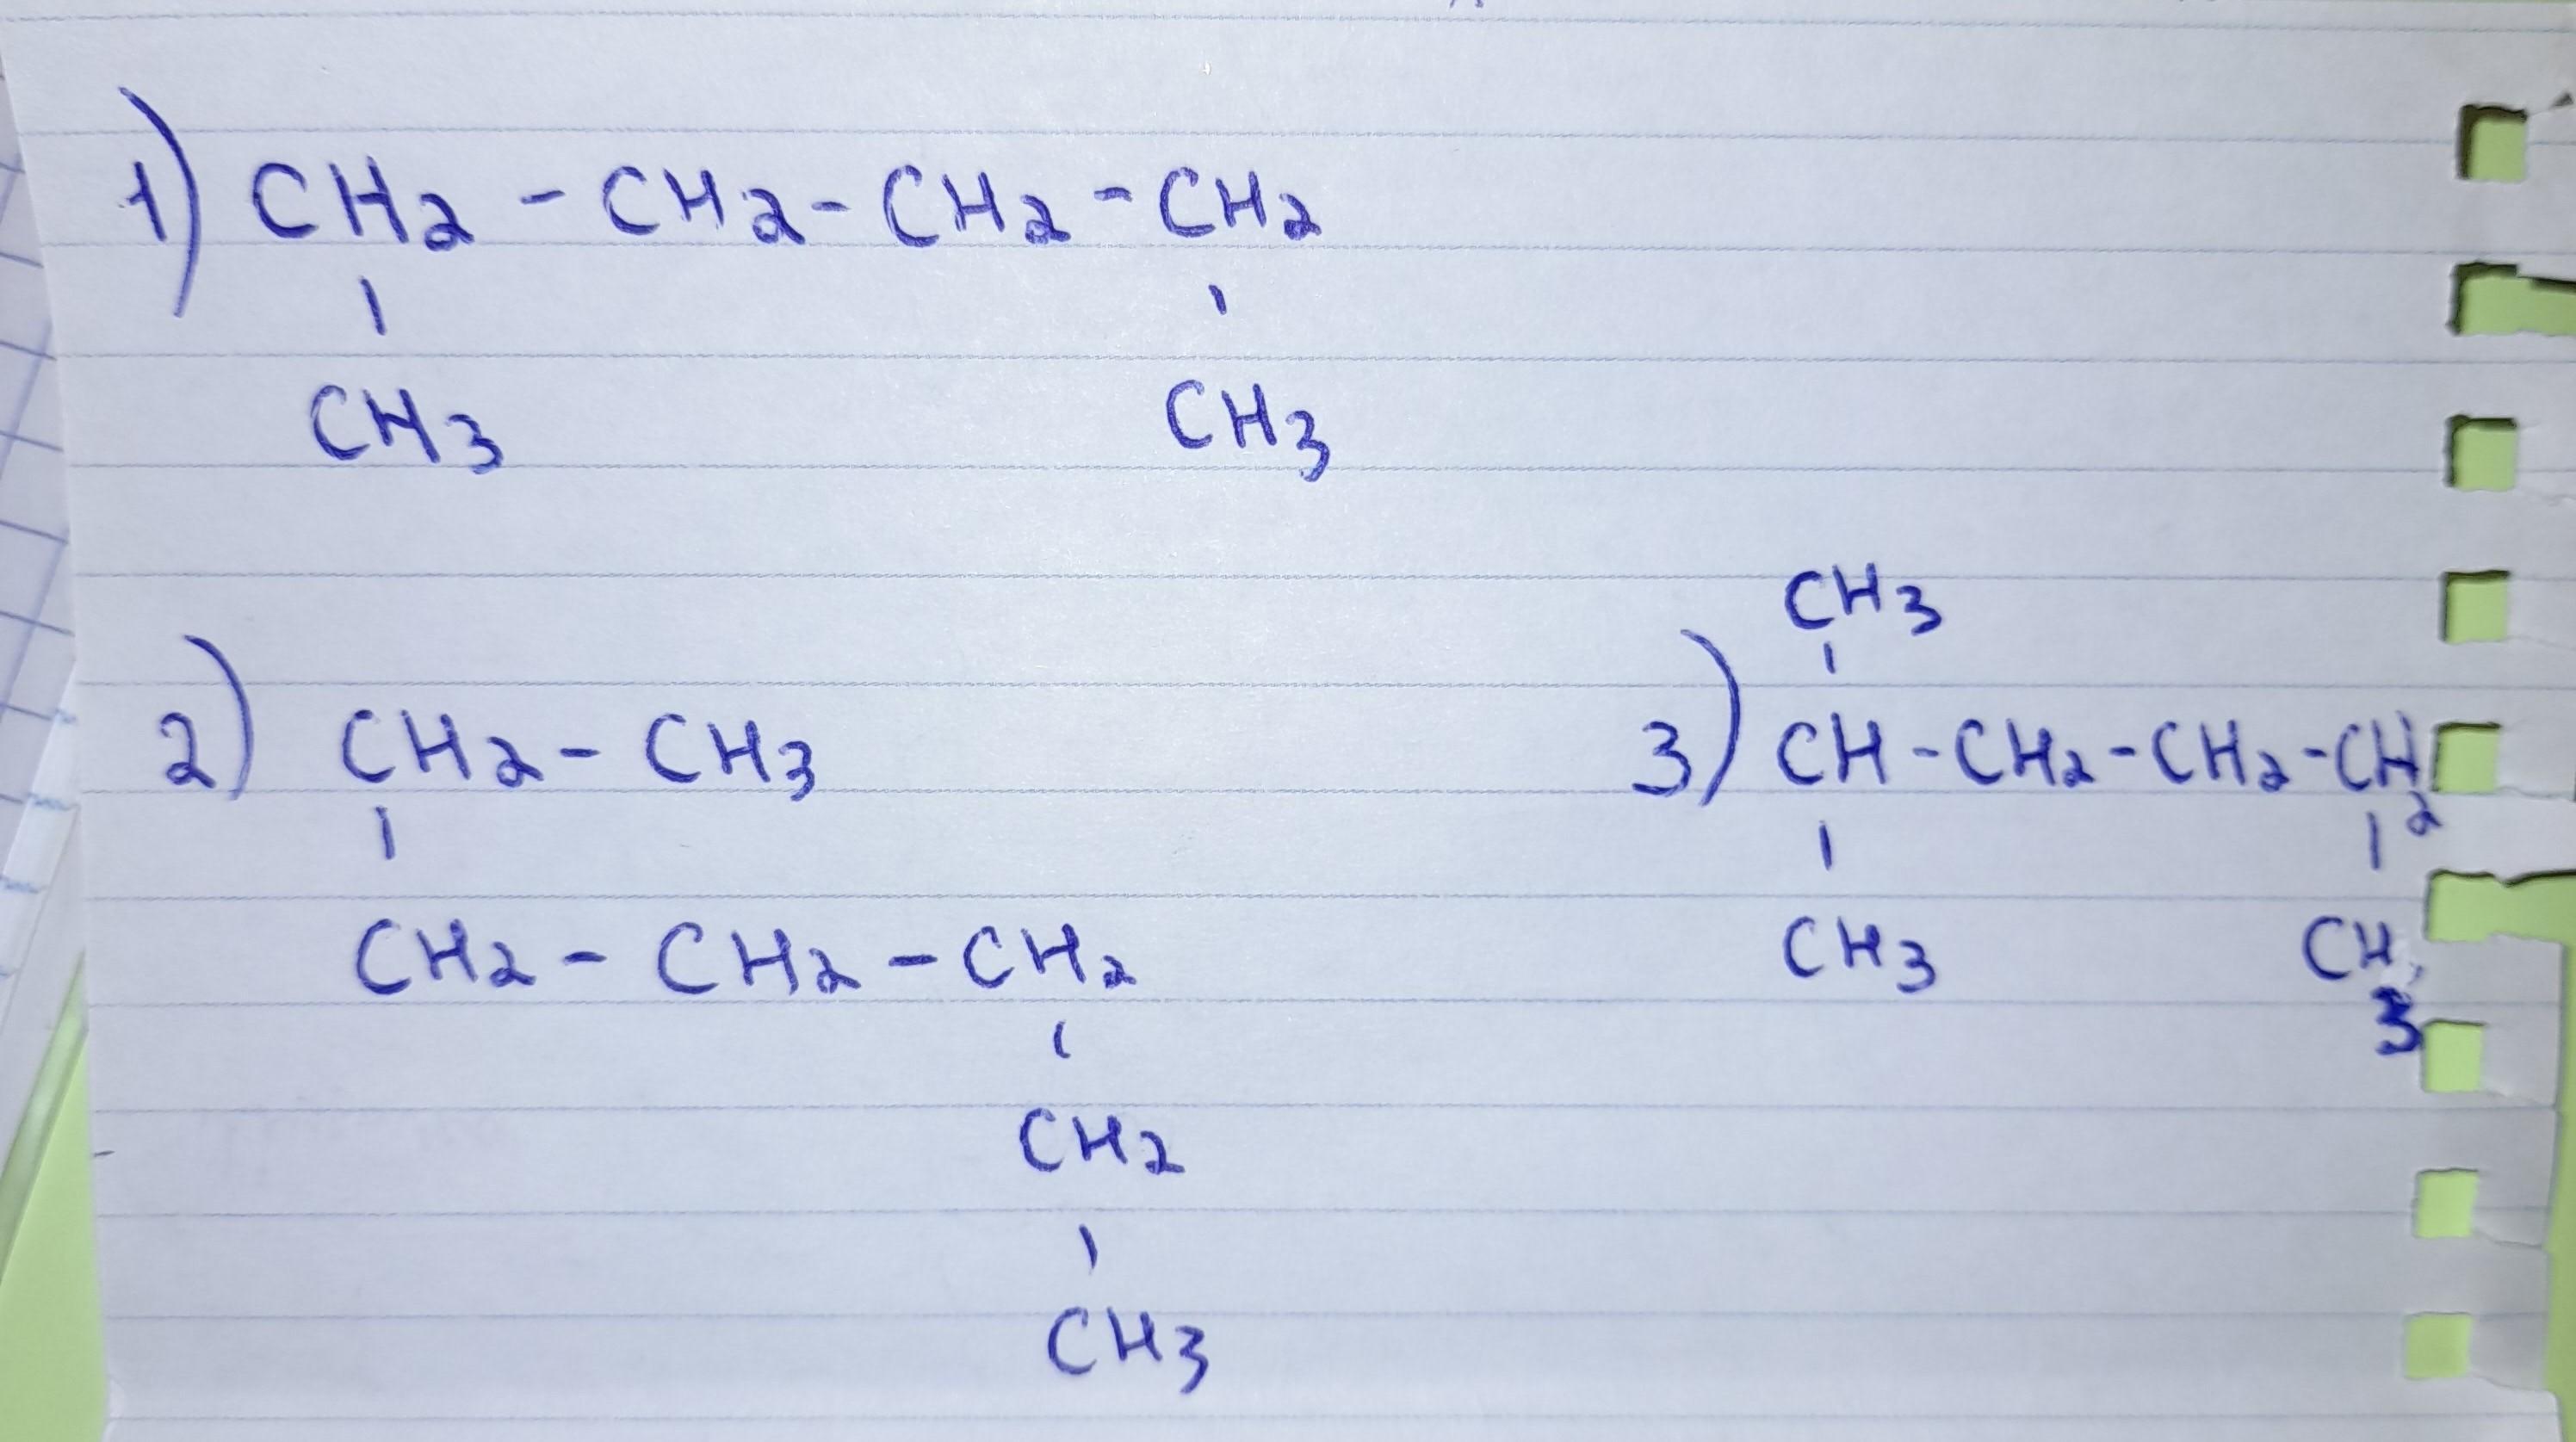 1) CH2 - CH2 - CH2 - CH2
CH3 CH3
2) CH2 - CH3
CH2 - CH2 - CH2
CH2
CH3
CH3
3) CH - CH2 - CH2 - CH2
CH3 CH3